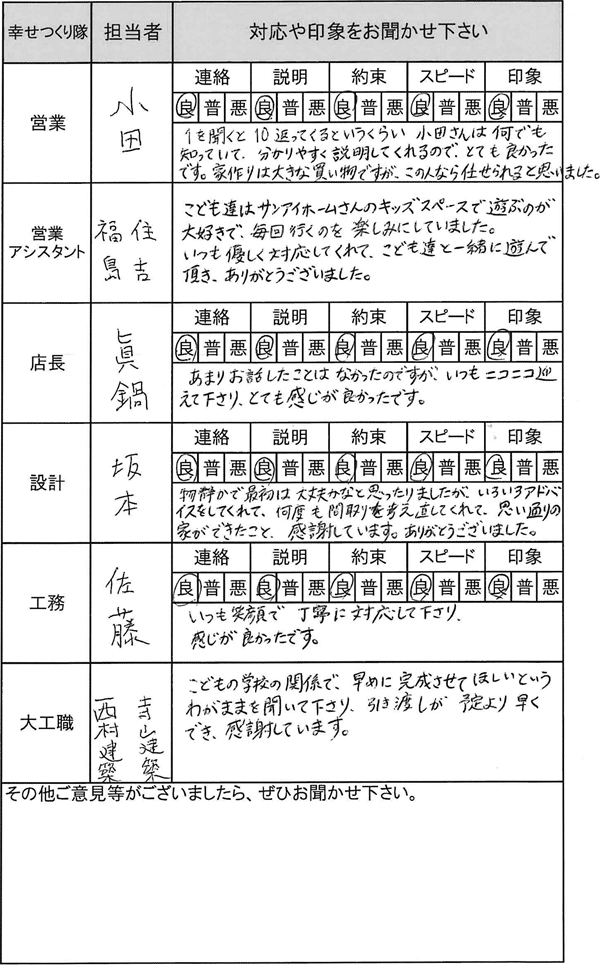 幸せつくり隊 担当者 対応や印象をお聞かせ下さい
営業 小田
連絡 説明 約束 スピード 印象
良 普 悪 良 普 悪 良 普 悪 良 普 悪 良 普 悪
1を聞くと10返ってくるというくらい 小田さんは何でも
知っていて、分かりやすく説明してくれるので、とても良かった
です。家作りは大きな買い物ですが、この人なら任せられると思いました。
営業
アシスタント
福島 住吉
こども達はサンアイホームさんのキッズスペースで遊ぶのが
大好きで、毎回行くのを楽しみにしていました。
いつも優しく対応してくれて、こども達と一緒に遊んで
頂き、ありがとうございました。
店長 眞鍋
連絡 説明 約束 スピード 印象
良 普 悪 良 普 悪 良 普 悪 良 普 悪 良 普 悪
あまりお話したことは なかったのですが、いつも ニコニコ迎
えて下さり、とても感じが良かったです。
設計 坂本
連絡 説明 約束 スピード 印象
良 普 悪 良 普 悪 良 普 悪 良 普 悪 良 普 悪
物静かで最初は大丈夫かなと思ったりましたが、いろいろアドバ
イスをしてくれて、何度も間取りを考え直してくれて、思い通りの
家ができたこと、感謝しています。ありがとうございました。
工務 佐藤
連絡 説明 約束 スピード 印象
良 普 悪 良 普 悪 良 普 悪 良 普 悪 良 普 悪
いつも笑顔で 丁寧に対応して下さり、
感じが良かったです。
大工職
寺山建築
西村建築
こどもの学校の関係で、早めに完成させてほしいという
わがままを聞いて下さり、引き渡しが 予定より早く
でき、感謝しています。
その他ご意見等がございましたら、ぜひお聞かせ下さい。